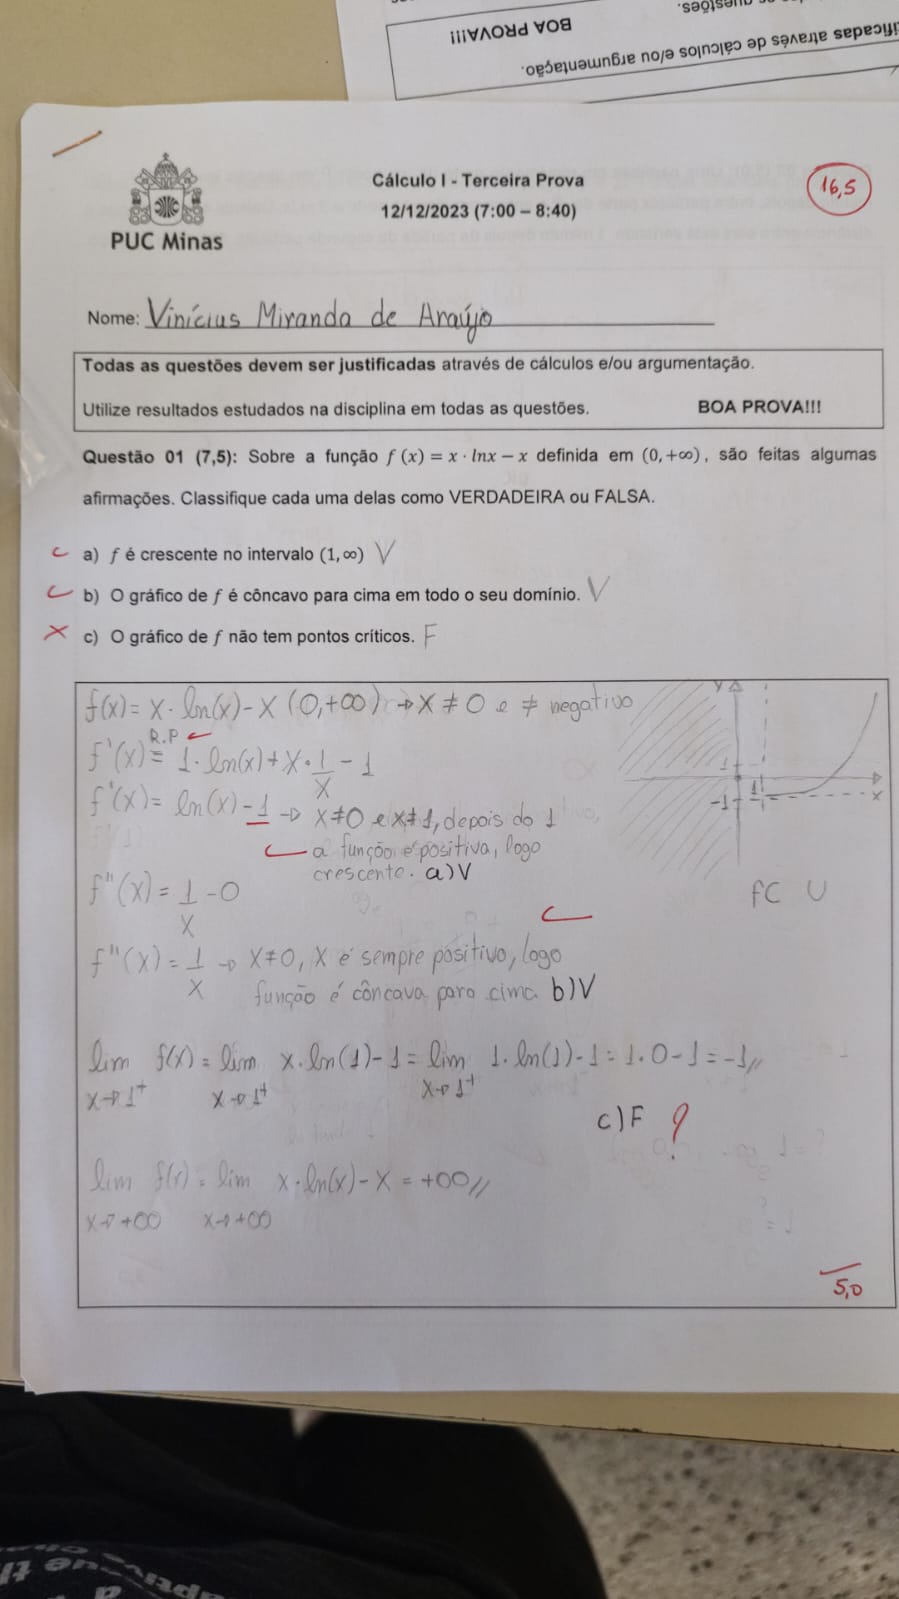 questões.
BOA PROVA!!!
ificadas através de cálculos e/ou argumentação.
Cálculo I - Terceira Prova
16,5
12/12/2023 (7:00 – 8:40)
PUC Minas
Nome: Vinícius Miranda de Araújo
Todas as questões devem ser justificadas através de cálculos e/ou argumentação.
Utilize resultados estudados na disciplina em todas as questões. BOA PROVA!!!
Questão 01 (7,5): Sobre a função f(x) = x · lnx – x definida em (0,+∞), são feitas algumas
afirmações. Classifique cada uma delas como VERDADEIRA ou FALSA.
a) f é crescente no intervalo (1,∞) V
b) O gráfico de f é côncavo para cima em todo o seu domínio. V
c) O gráfico de f não tem pontos críticos. F
f(x) = x · ln(x) - x (0,+∞) → x ≠ 0 e ≠ negativo
R.P
f'(x) = 1 · ln(x) + x · 1/x - 1
f'(x) = ln(x) - 1 → x ≠ 0 e x ≠ 1, depois do 1
a função é positiva, logo
crescente. a) V
f''(x) = 1/x - 0
f''(x) = 1/x → x ≠ 0, x é sempre positivo, logo
função é côncava para cima. b) V
y
1
1
-1
x
fC U
lim f(x) = lim x · ln(1) - 1 = lim 1 · ln(1) - 1 = 1 · 0 - 1 = -1 //
x→1⁺ x→1⁺ x→1⁺
c) F ?
lim f(x) = lim x · ln(x) - x = +∞ //
x→+∞ x→+∞
5,0